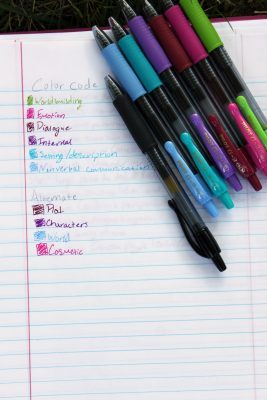 Color Code
Worldbuilding
Emotion
Dialogue
Internal
Setting/description
Nonverbal communication
Alternate
Plot
Characters
World
Cosmetic